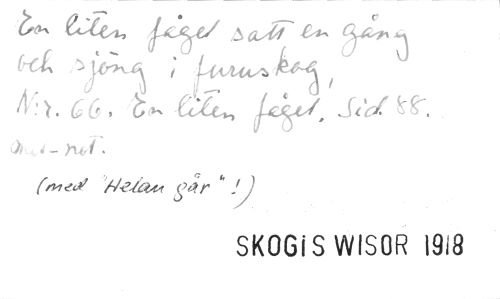 En liten fågel satt en gång
och sjöng i furuskog,
N:r. 66. En liten fågel. Sid. 88.
med not.
(med "Helan går"!)
SKOGiS WISOR 1918